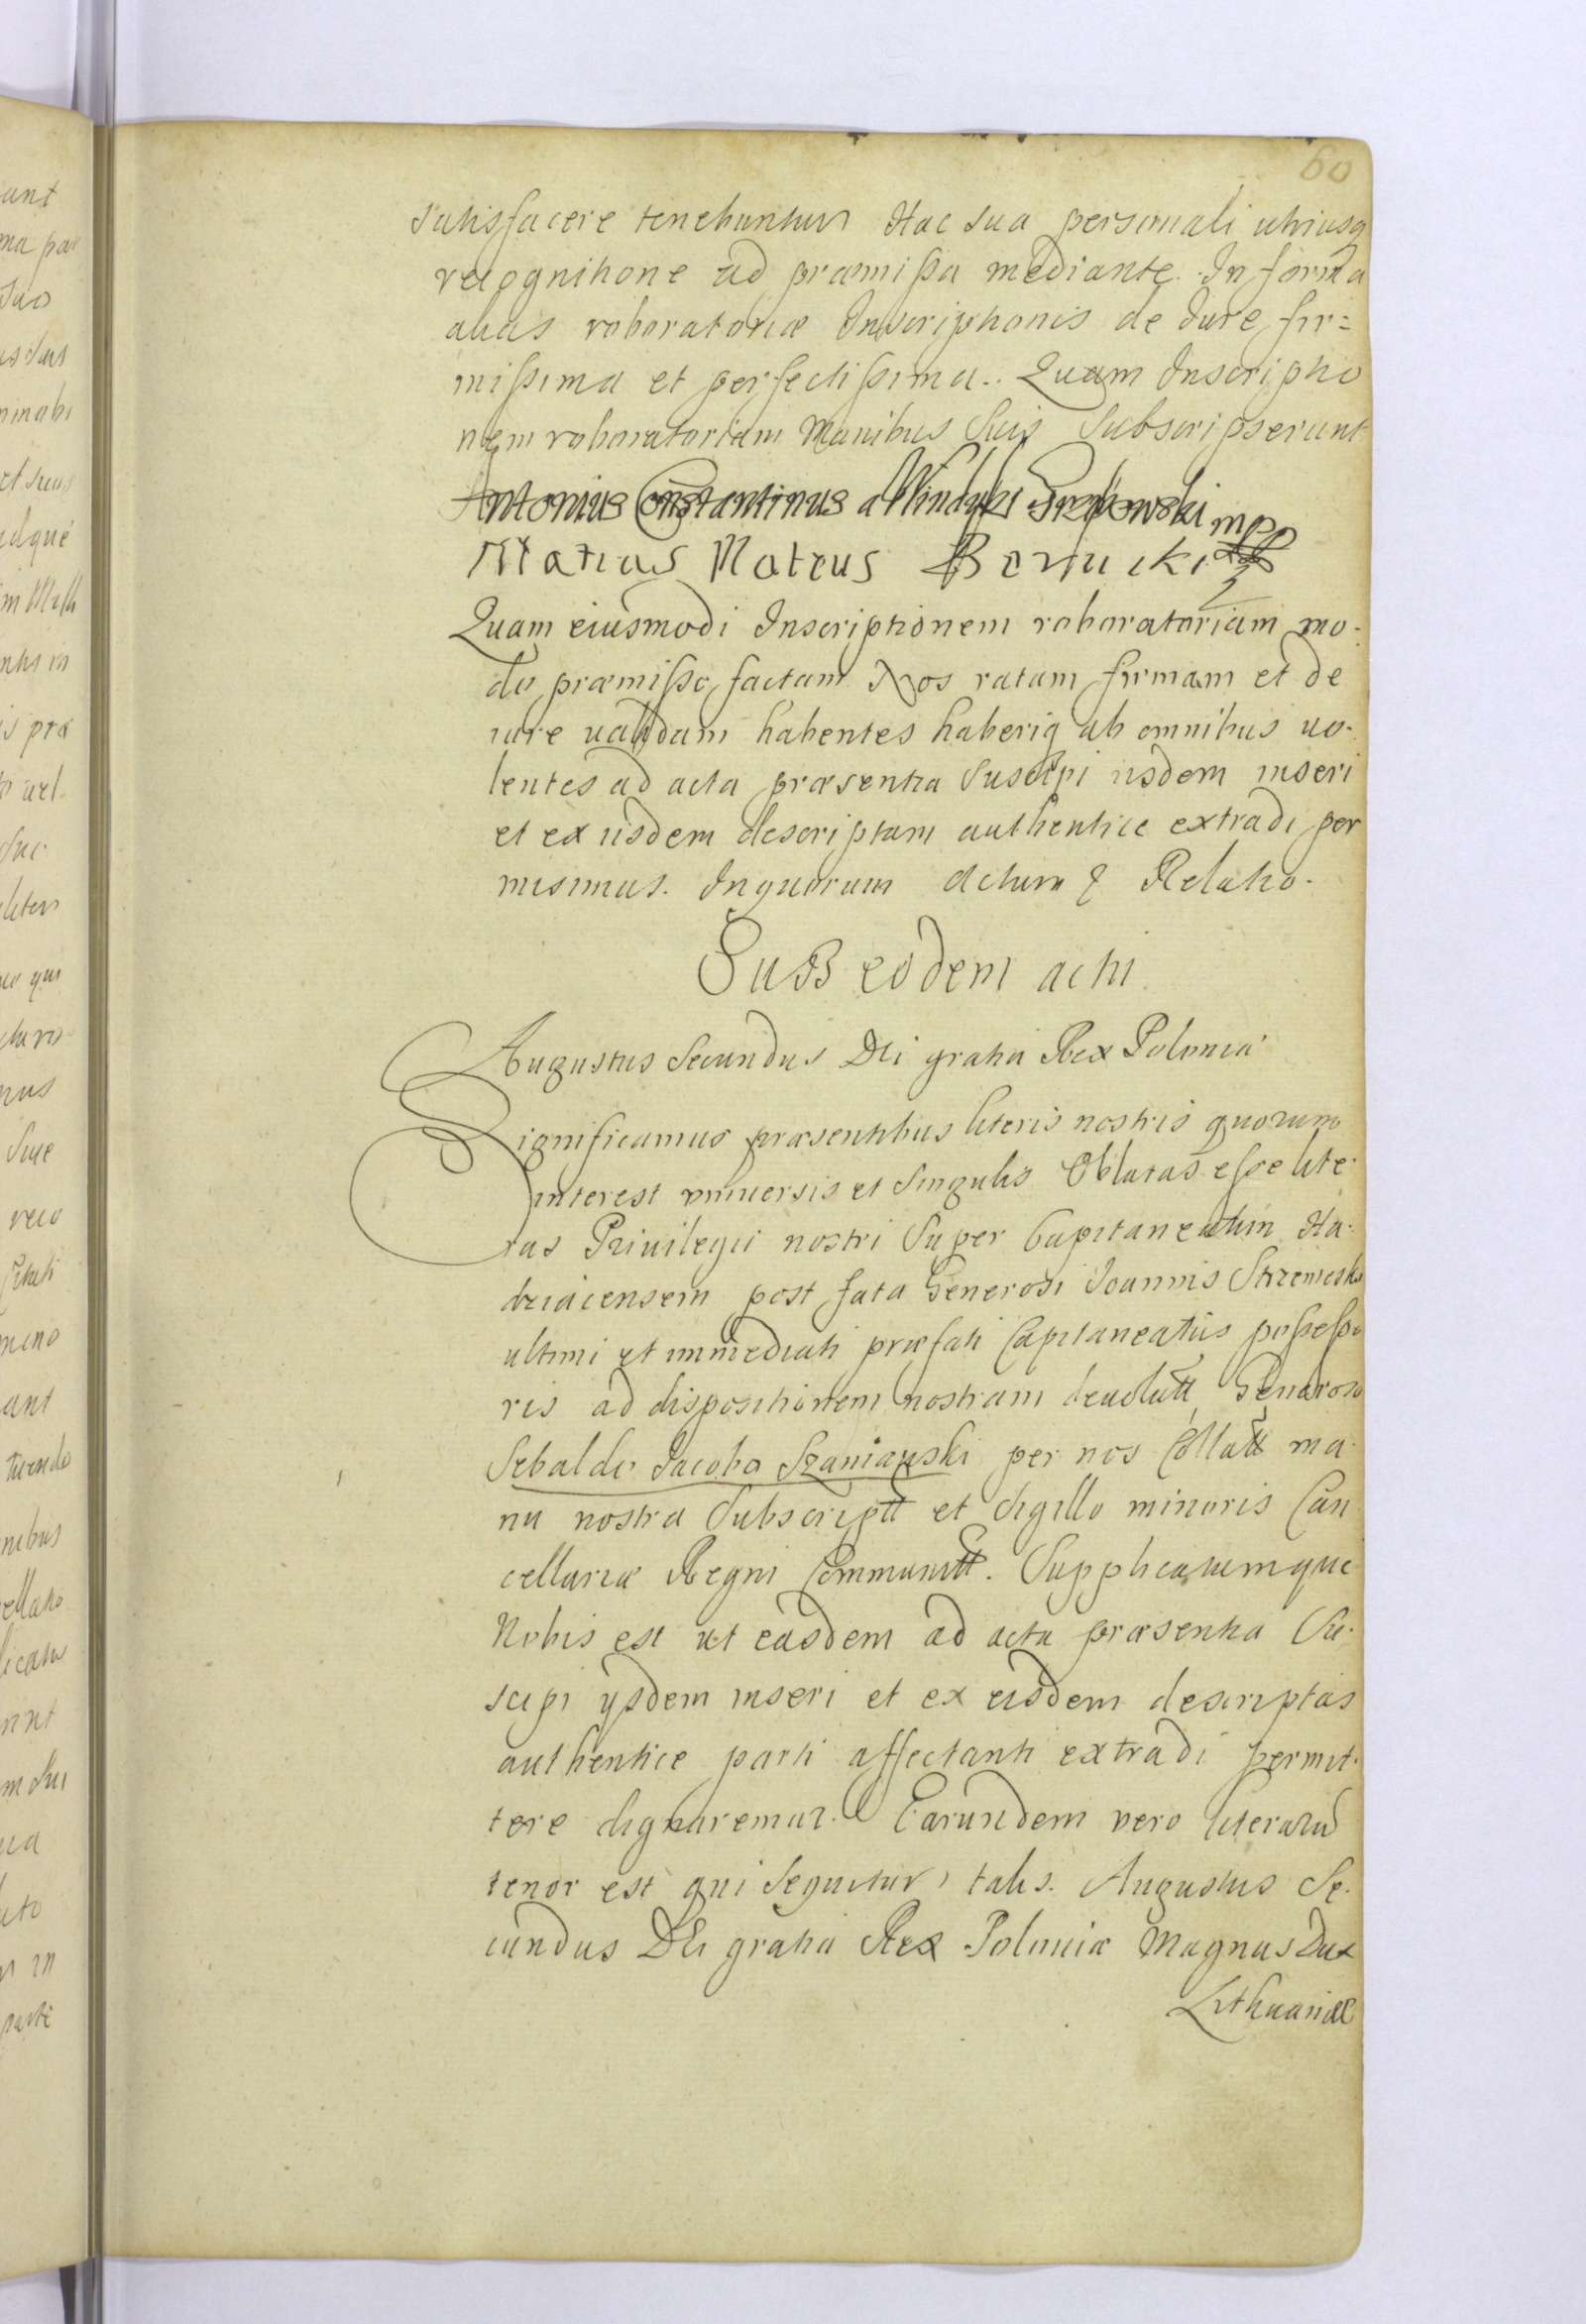 60
satisfacere tenebuntur Hac sua personali utriusq
recognitione ad præmissa mediante. In forma
alias roboratoriæ Inscriptionis de Jure fir=
missima et perfectissima.. Quam Inscriptio
nem roboratoriam Manibus Suis Subscripserunt
Antonius Constantinus a mpp
Matias Mateus
Quam eiusmodi Inscriptionem roboratoriam mo-
do præmisso factam Nos ratam firmam et de
iure ualidam habentes haberiq ab omnibus uo-
lentes ad acta præsentia Suscipi iisdem inseri
et ex iisdem descriptam authentice extradi per
misimus. In quorum Actum & Relatio.
Sub eodem actu
Augustus Secundus Dei gratia Rex Poloniæ
Significamus præsentibus literis nostris quorum
interest vniuersis et Singulis Oblatas esse lite-
ras Priuilegii nostri Super Capitaneatum Ha-
dziacensem post fata Generosi Joannis
ultimi et immediati præfati Capitaneatus possesso
ris ad dispositionem nostram deuolutt Generoso
Sebaldo Jacobo Szaniawski per nos Collatt ma-
nu nostra Subscriptt et Sigillo minoris Can
cellariæ Regni Communitt. Supplicatumque
Nobis est ut easdem ad acta præsentia Su-
scipi ysdem inseri et ex eisdem descriptas
authentice parti affectanti extradi permit-
tere dignaremur. Earundem vero literarū
tenor est qui Sequitur talis. Augustus Se-
cundus DEi gratia Rex Poloniæ Magnus Dux
Lithuaniæ